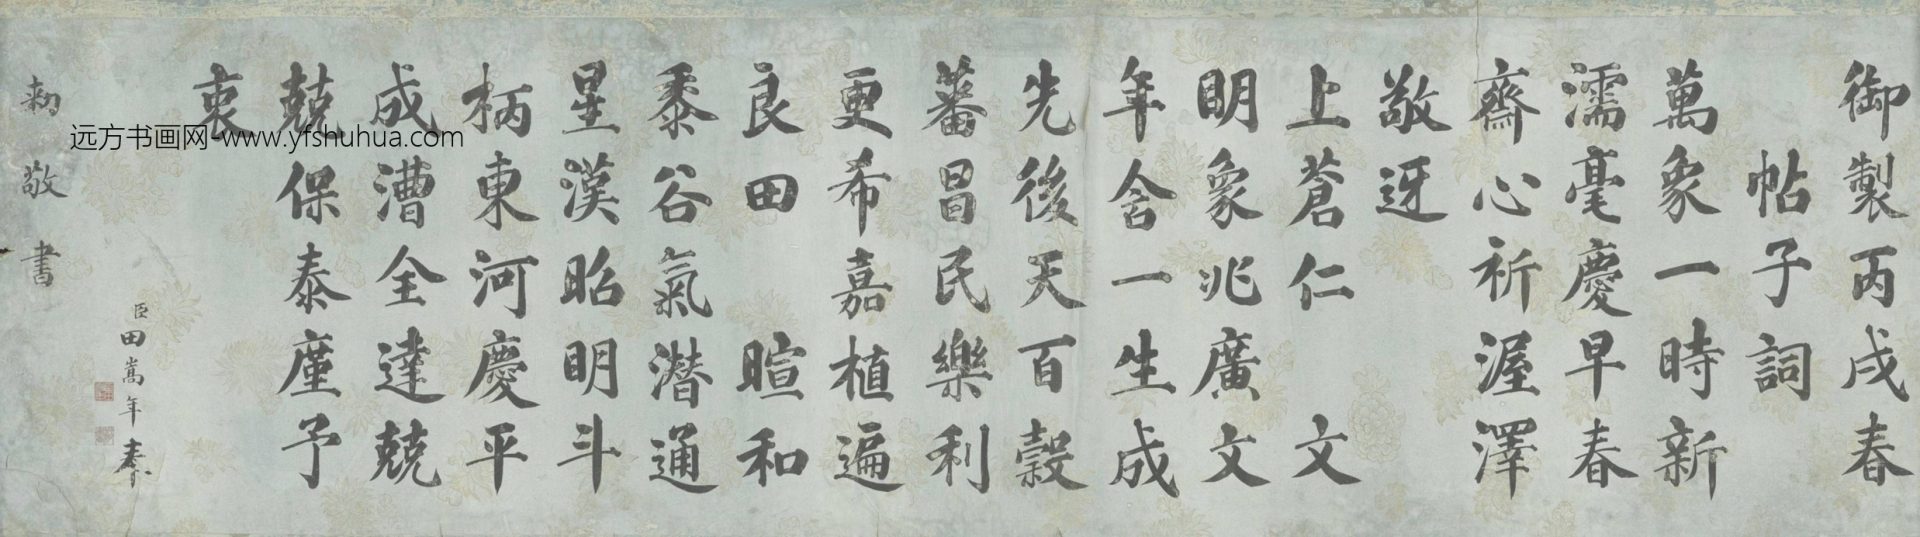 御製丙戌春
帖子詞
萬象一時新
濡毫慶早春
齋心祈渥澤
敬迓
上蒼仁 文
明象兆廣文
年舍一生成
先後天百穀
蕃昌民樂利
更希嘉植遍
良田 暄和
黍谷氣潛通
星漢昭明斗
柄東河慶平
成漕全達兢
兢保泰廑予
衷
臣田嵩年奉
敕敬書
远方书画网-www.yfshuhua.com